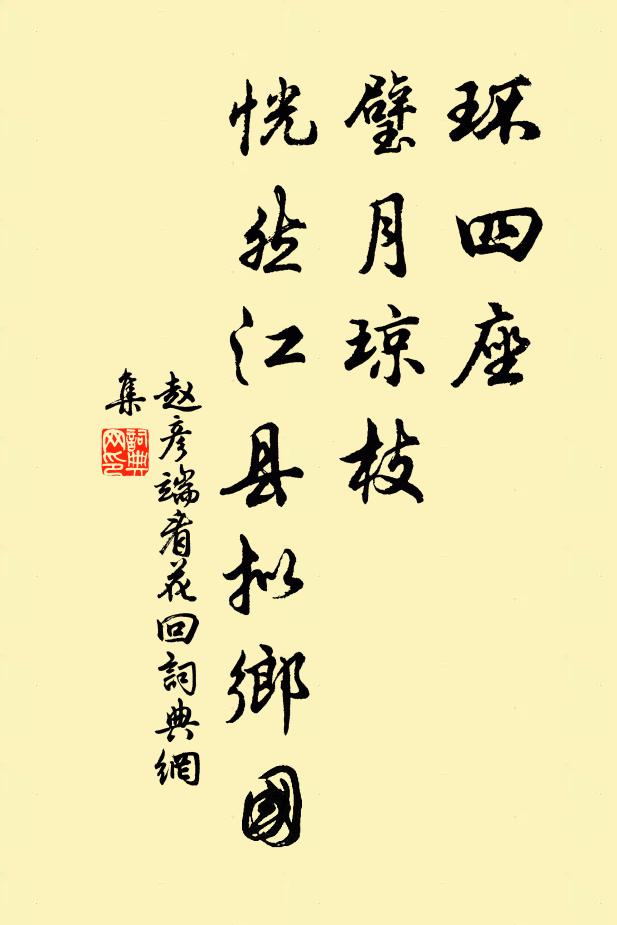 环四座
璧月琼枝
恍然江县拟鄉國
赵彦端看花回詞典網
集
詞典网印